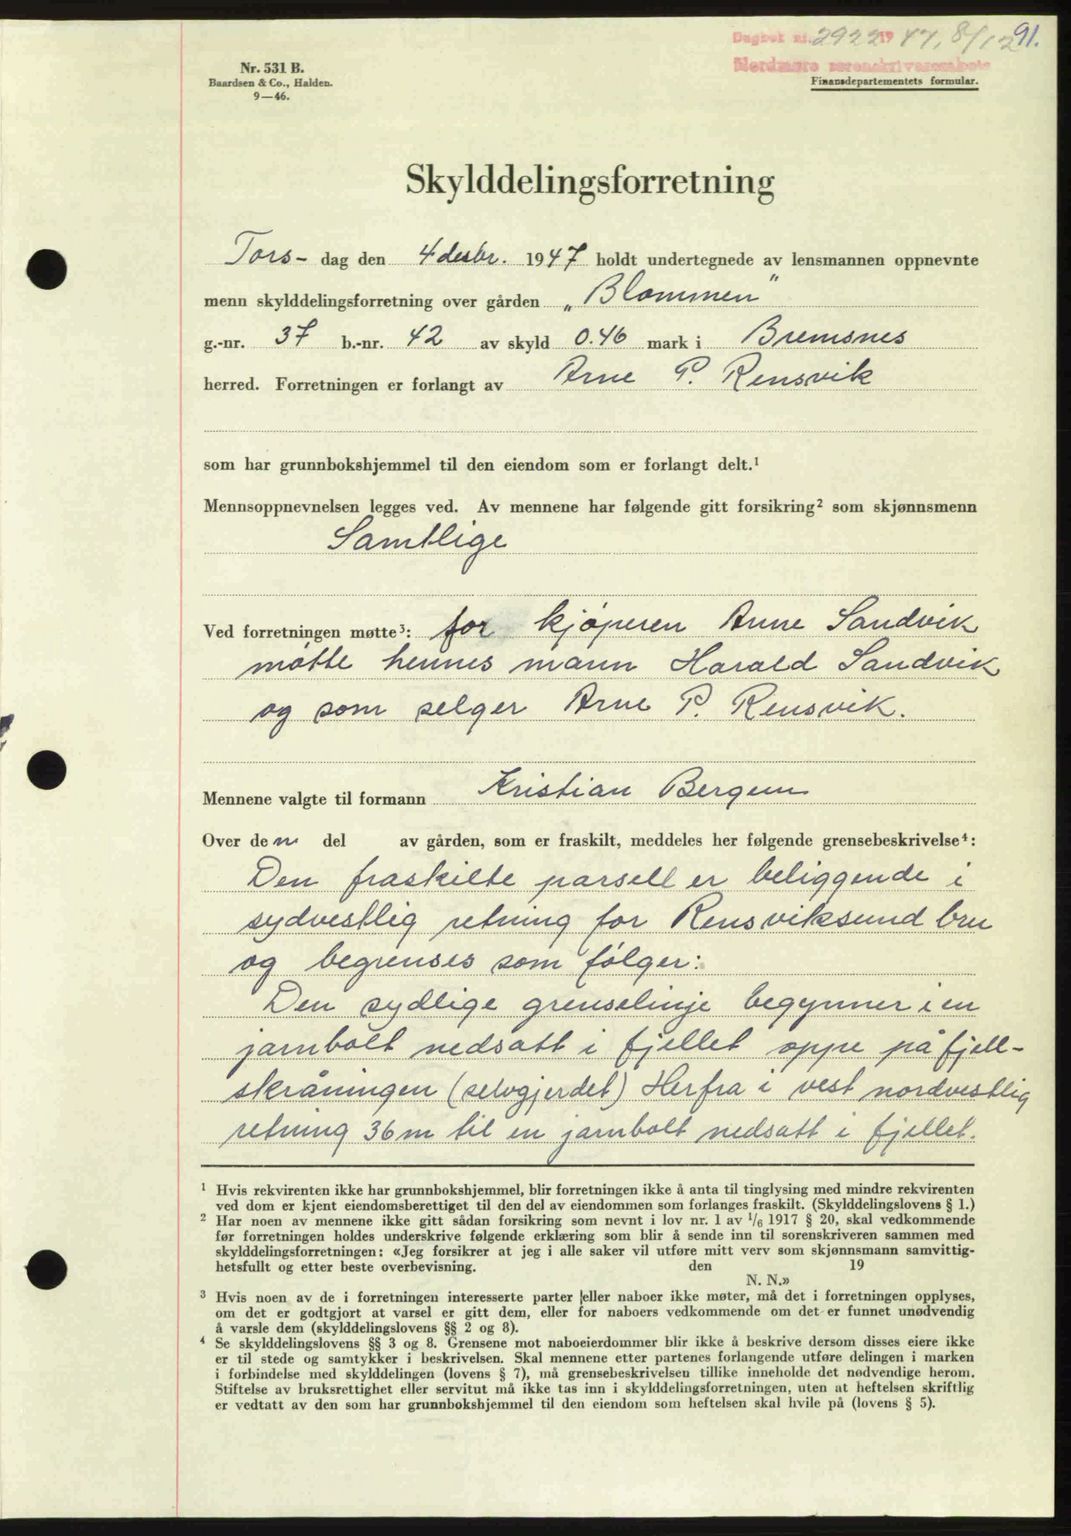 Dagbok nr. 2922 19 47, 8/12 91.
Nordmøre sorenskriverembete
Nr. 531 B.
Baardsen & Co., Halden.
9—46.
Finansdepartementets formular.
Skylddelingsforretning
Tors- dag den 4 desbr. 1947 holdt undertegnede av lensmannen oppnevnte
menn skylddelingsforretning over gården „Blommen"
g.-nr. 37 b.-nr. 42 av skyld 0.46 mark i Bremsnes
herred. Forretningen er forlangt av Arne P. Rensvik
som har grunnbokshjemmel til den eiendom som er forlangt delt.¹
Mennsoppnevnelsen legges ved. Av mennene har følgende gitt forsikring² som skjønnsmenn
Samtlige
Ved forretningen møtte³: for kjøperen Anne Sandvik
møtte hennes mann Harald Sandvik
og som selger Arne P. Rensvik.
Mennene valgte til formann Kristian Bergem
Over den del av gården, som er fraskilt, meddeles her følgende grensebeskrivelse⁴:
Den fraskilte parsell er beliggende i
sydvestlig retning for Rensviksund bru
og begrenses som følger:
Den sydlige grenselinje begynner i en
jarnbolt nedsatt i fjellet oppe på fjell-
skråningen (selvgjerdet) Herfra i vest nordvestlig
retning 36 m til en jarnbolt nedsatt i fjellet.
¹ Hvis rekvirenten ikke har grunnbokshjemmel, blir forretningen ikke å anta til tinglysing med mindre rekvirenten
ved dom er kjent eiendomsberettiget til den del av eiendommen som forlanges fraskilt. (Skylddelingslovens § 1.)
² Har noen av mennene ikke gitt sådan forsikring som nevnt i lov nr. 1 av 1/6 1917 § 20, skal vedkommende
før forretningen holdes underskrive følgende erklæring som blir å sende inn til sorenskriveren sammen med
skylddelingsforretningen: «Jeg forsikrer at jeg i alle saker vil utføre mitt verv som skjønnsmann samvittig-
hetsfullt og etter beste overbevisning. den 19
N. N.»
³ Hvis noen av de i forretningen interesserte parter eller naboer ikke møter, må det i forretningen opplyses,
om det er godtgjort at varsel er gitt dem, eller for naboers vedkommende om det er funnet unødvendig
å varsle dem (skylddelingslovens §§ 2 og 8).
⁴ Se skylddelingslovens §§ 3 og 8. Grensene mot naboeierdommer blir ikke å beskrive dersom disses eiere ikke
er til stede og samtykker i beskrivelsen. Skal mennene etter partenes forlangende utføre delingen i marken
i forbindelse med skylddelingen (lovens § 7), må grensebeskrivelsen tillike inneholde det nødvendige herom.
Stiftelse av bruksrettighet eller servitut må ikke tas inn i skylddelingsforretningen, uten at heftelsen skriftlig
er vedtatt av den som har grunnbokshjemmel til den eiendom som heftelsen skal hvile på (lovens § 5).